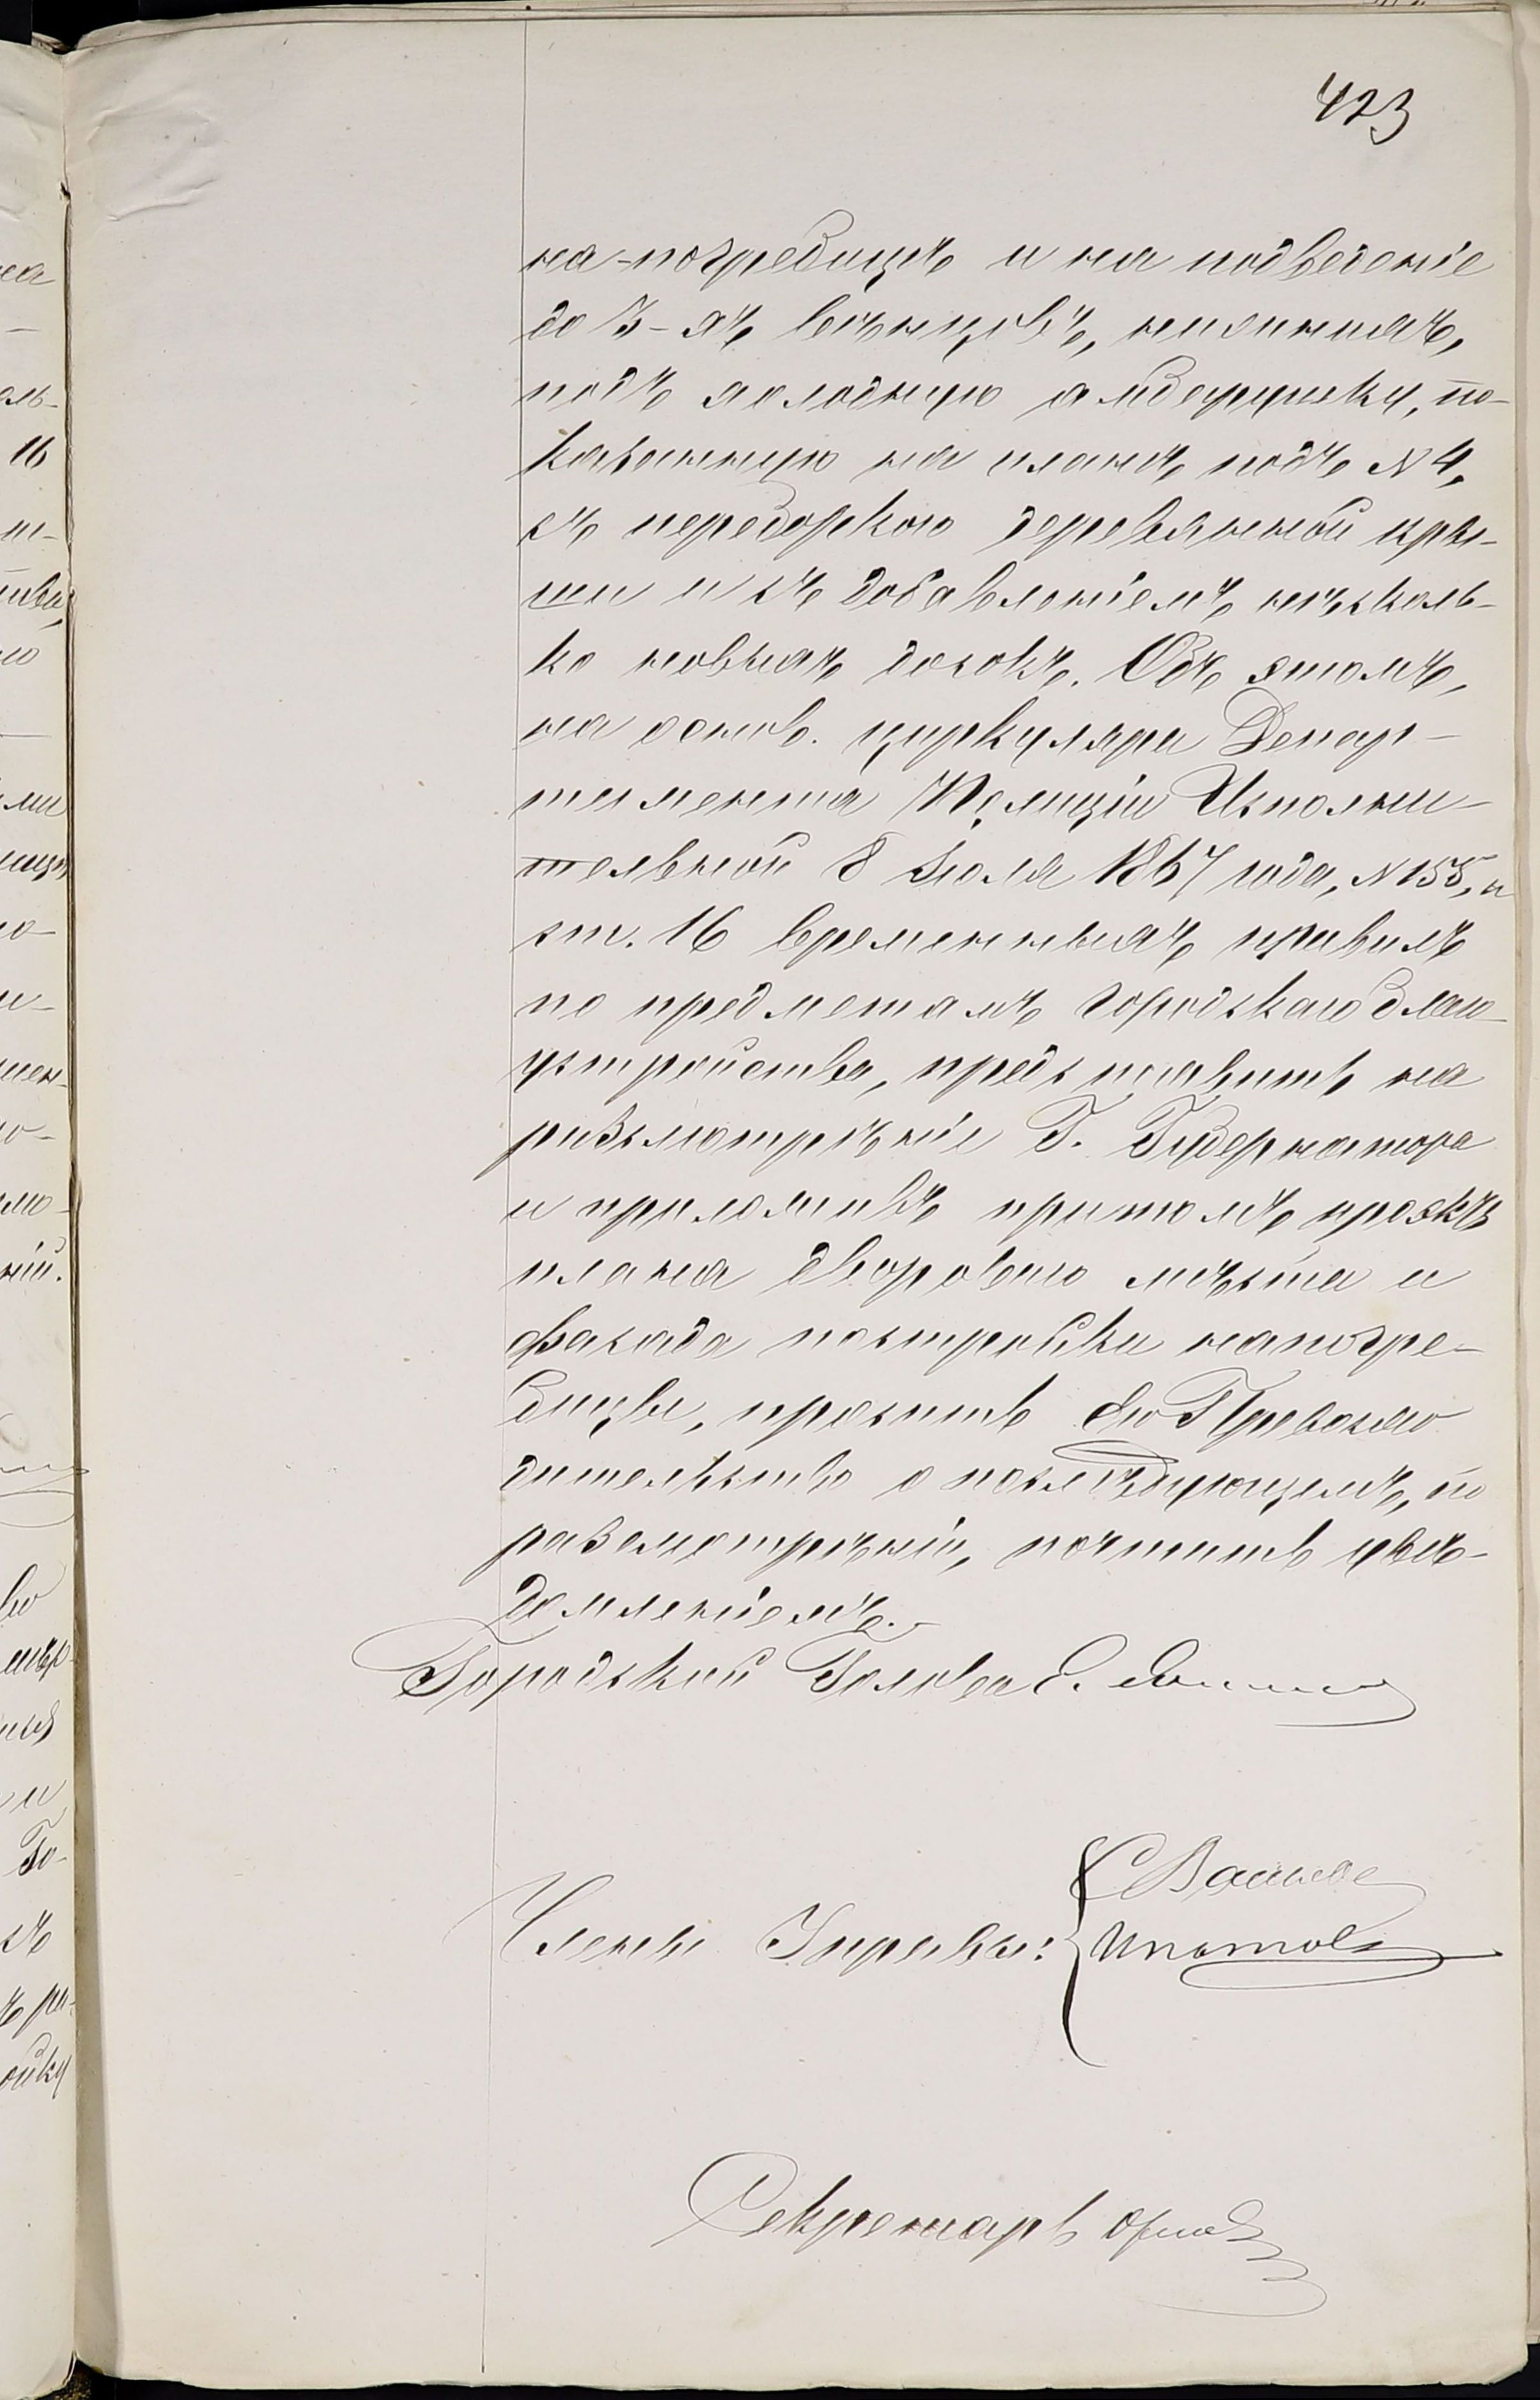 423
на-погребицѣ и на подведеніе
до 3-хъ вѣнцовъ, нижнихъ,
подъ холодную амбарушку, по-
казанную на планѣ подъ N 4,
съ переборкою деревянной кры-
ши и съ добавленіемъ нѣсколь-
ко новыхъ досокъ. Объ этомъ,
на основ. циркуляра Депар-
тамента Полиціи Исполни-
тельной 8 Іюля 1867 года, N 155, и
ст. 16 временныхъ правилъ
по предметамъ городскаго благо-
устройства, представить на
разсмотрѣніе Г. Губернатора
и приложивъ притомъ проэктъ
плана двороваго мѣста и
фасада постройки напогре-
бицы, просить Его Превосхо
дительство о послѣдующемъ, по
разсмотрѣніи, почтить увѣ-
домленіемъ.
Городской Голова Е.
Члены Управы: С Ваньков
Ипатовъ
Секретарь Орлов